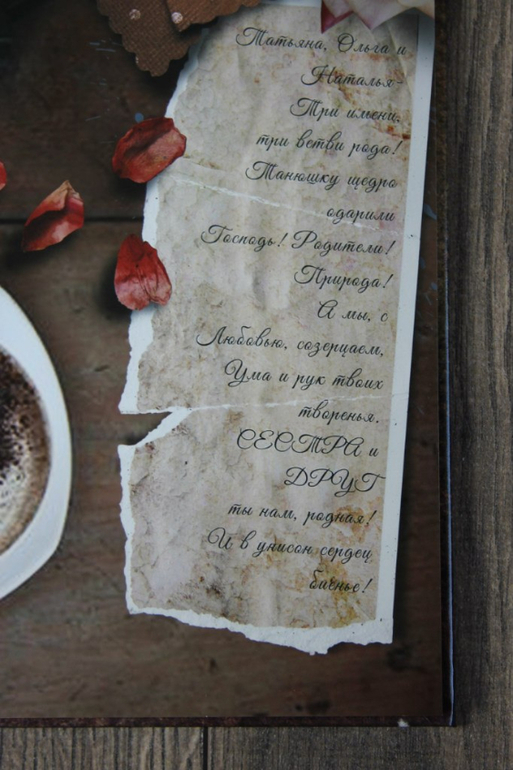 Татьяна, Ольга и
Наталья-
Три имени,
три ветви рода!
Танюшку щедро
одарили
Господь! Родители!
Природа!
А мы, с
Любовью, созерцаем,
Ума и рук твоих
творенья,
СЕСТРА и
ДРУГ
ты нам, родная!
И в унисон сердец
биенье!